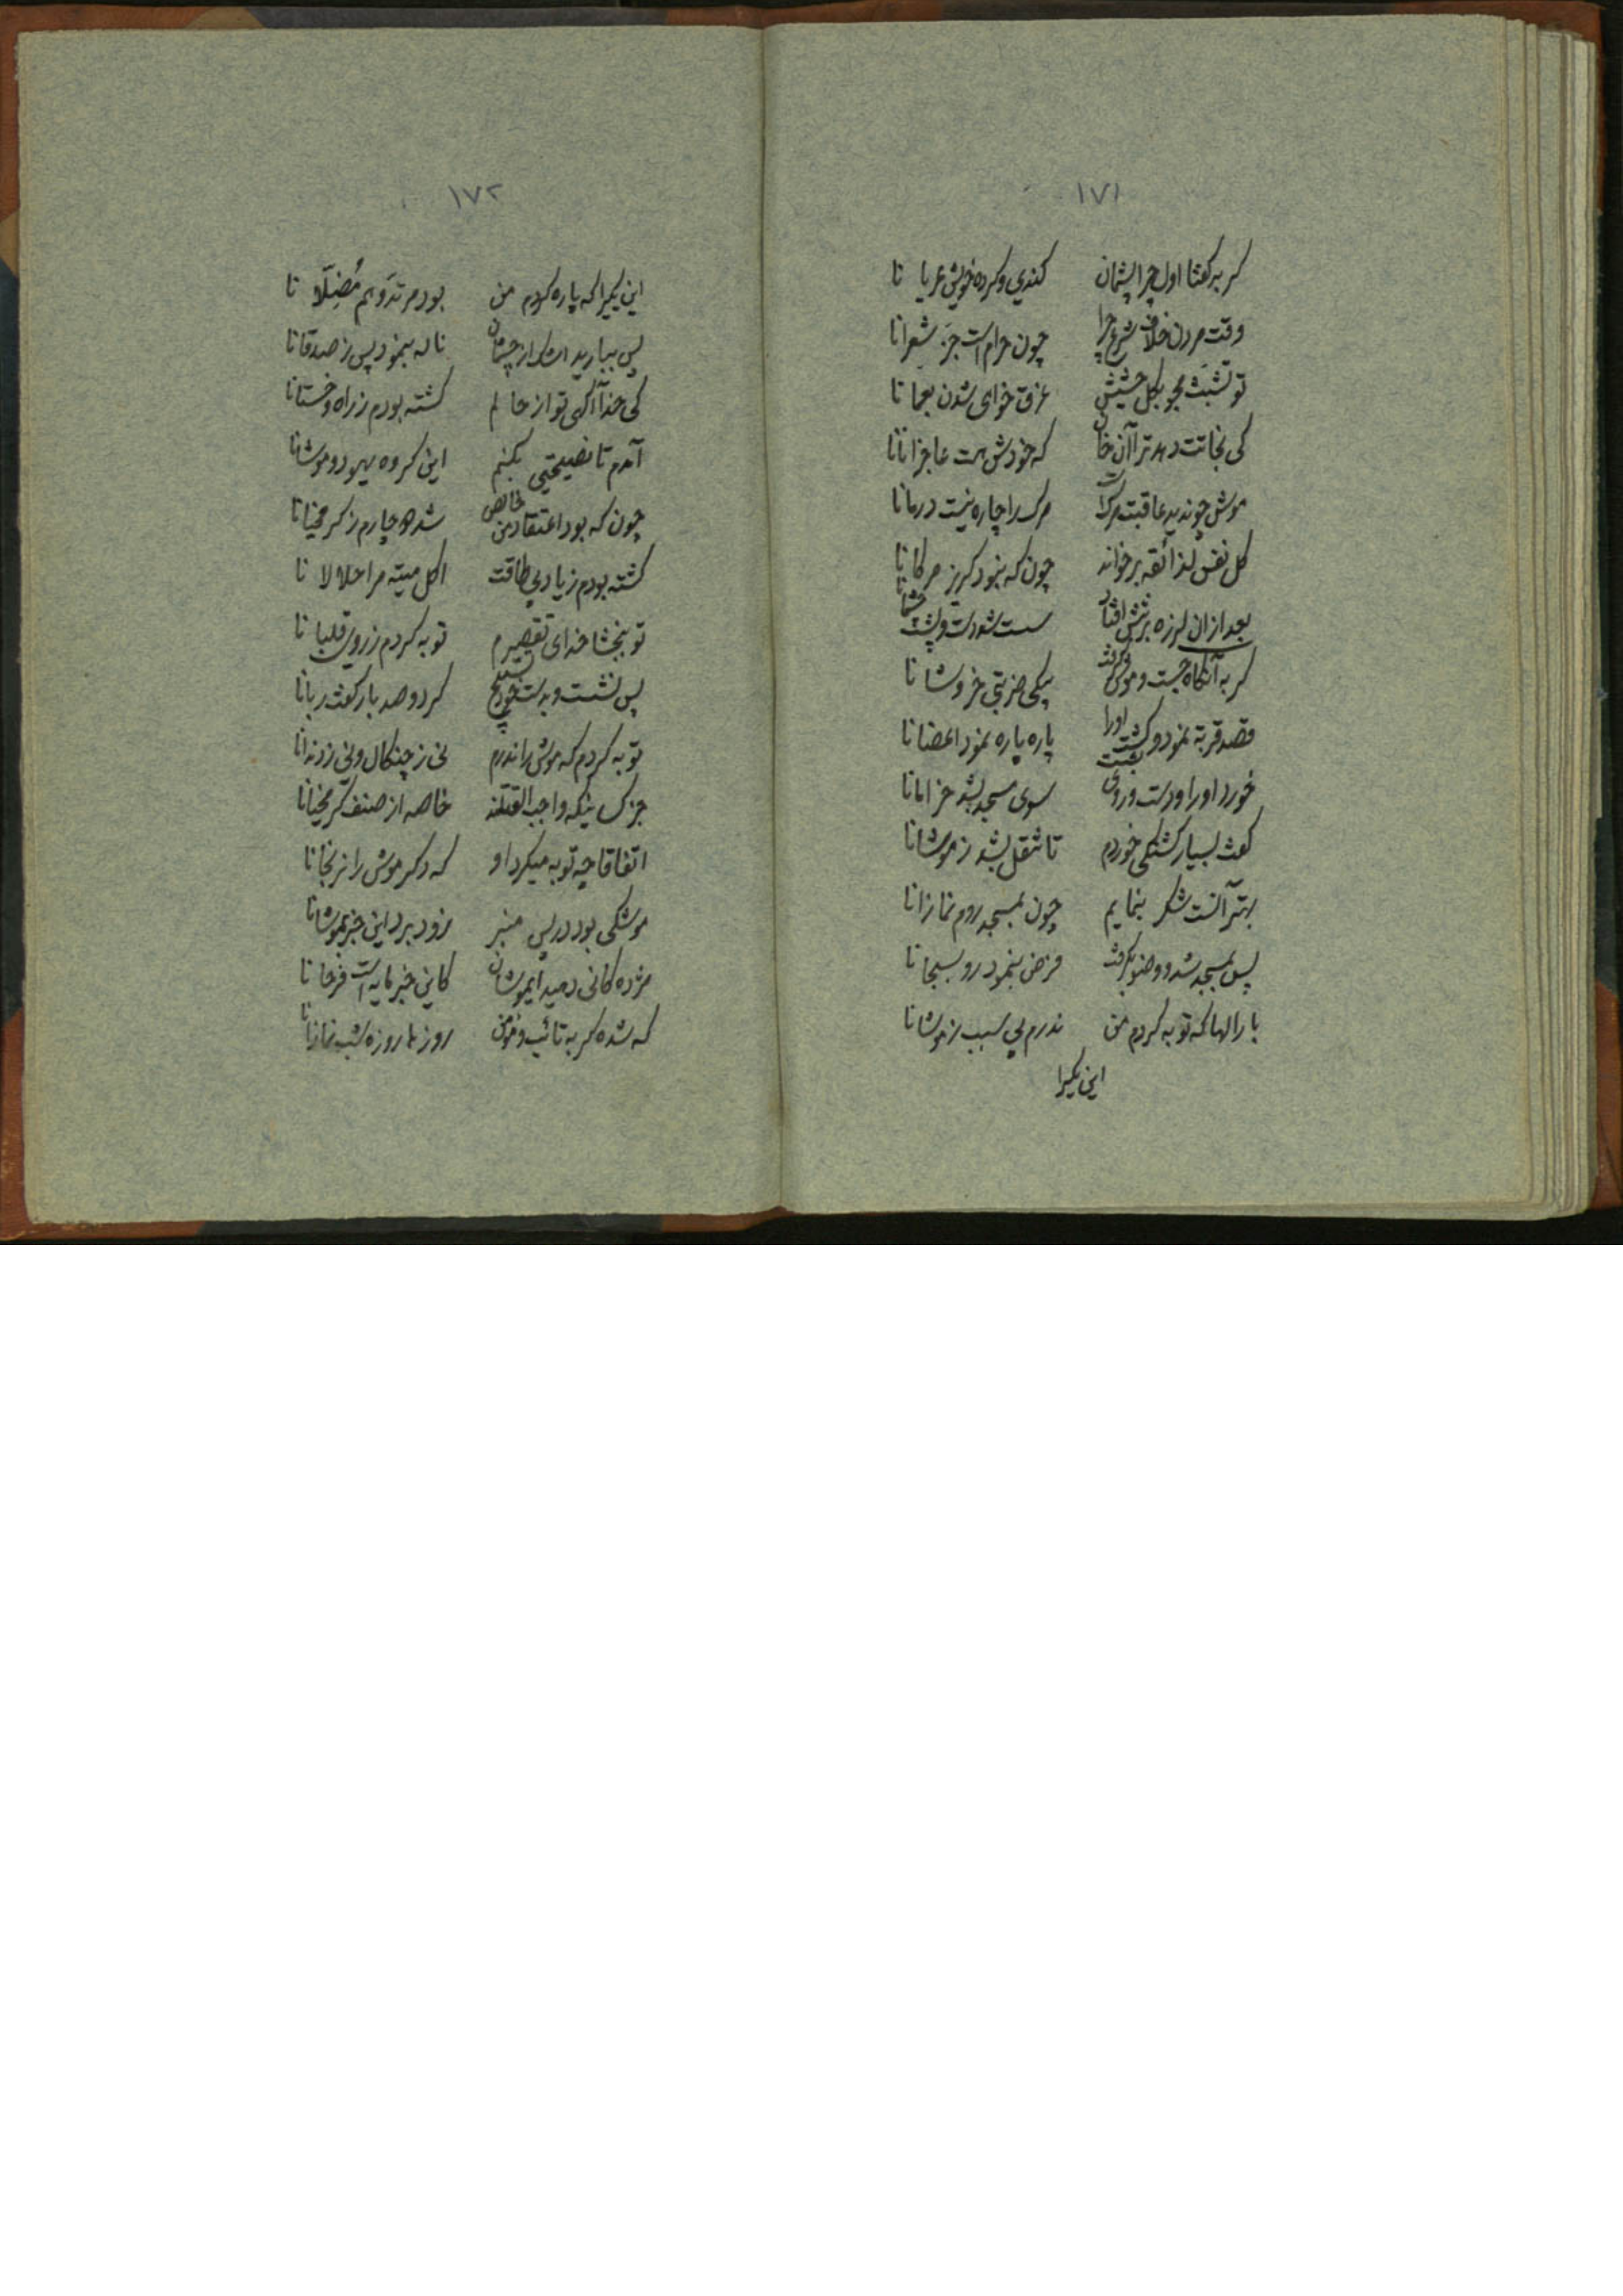 ۱۷۱
کربه کفتا اول چرا پشمان کندی و کرده خویش عریا نا
وقت مردن خلاف شرع چرا چون حرام است جزّ شعرانا
تو تشبث مجو بکل حشیش غرق خواهی شدن بعمانا
کی نجاتت دهد ترا آن خان که خودش هست عاجزانانا
موش چو ندید عاقبت مرکست مرک را چاره نیست درمانا
کل نفس لذائقه برخواند چون که نبود کریز مرکانا
بعد ازان لرزه بر تنش افتاد سست شد دست و پشت
کربه آنکاه جست و موش کرفت یکی ضربتی خروشانا
قصد قربة نمود و کشت اورا پاره پاره نمود اعضانا
خورد اورا و دست و روی بشست سوی مسجد بشد خرامانا
کفت بسیار کشتکی خوردم تا شقل بشد ز موشانا
بهتر آنست شکر بنمایم چون بمسجد روم نمازانا
پس بمسجد شد و وضو بکرفت فرض بنمود رو بسبحانا
بارالها که توبه کردم من ندرم بی سبب ز موشانا
این یکیرا
۱۷۲
این یکیرا که پاره کردم من بود مرتد و هم مُضِلّا نا
پس ببارید اشک از چشمان ناله بنمود پس ز صدقانا
کی خدا آکهی تو از حالم کشته بودم ز راه وخستانا
آمدم تا نصیحتی بکنم این کروه یهود و موشانا
چون که بود اعتقاد من خالص شد دو چارم ز کرمخیانا
کشته بودم زیاد بی طاقت اکل میته مرا حلالا نا
تو ببخشا خدای تقصیرم توبه کردم ز روی قلبا نا
پس نشست و بدست خود تسبیح کرد و صد بار کفت ربانا
توبه کردم که موش را ندرم نی ز چنکال و نی ز دندانا
جز کسانیکه واجب القتلند خاصه از صنف کرمخیانا
اتفاقا چه توبه میکرد او که دکر موش را نرنجانا
موشکی بود در پس منبر زود برد این خبر بموشانا
مژده کانی دهید ایموشان کاین خبر مایه است فرحانا
که شده کربه تائب و مؤمن روزها روزه شب نمازانا